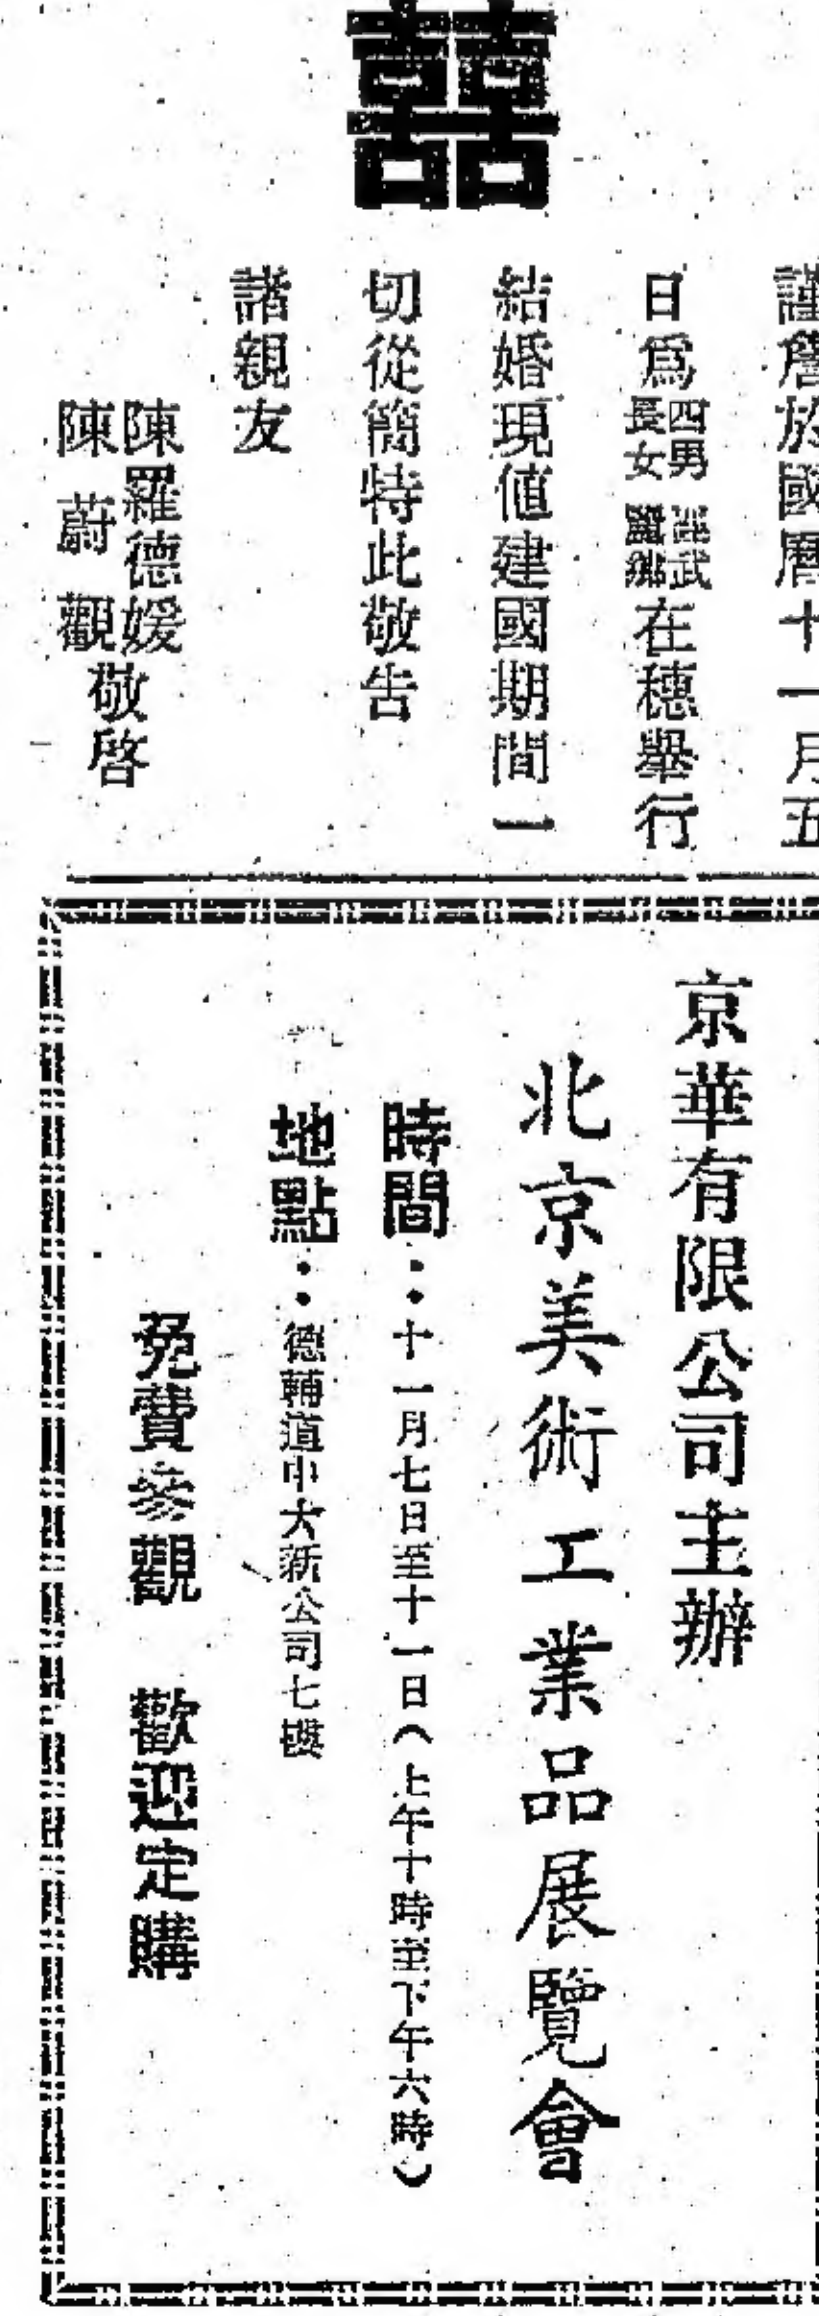 囍
謹詹於國曆十一月五
日爲四男
長女
武
在穗舉行
結婚現値建國期間一
切從簡特此敬告
諸親友
陳羅德媛
陳蔚觀
敬啓
京華有限公司主辦
北京美術工業品展覽會
時間：十一月七日至十一日（上午十時至下午六時）
地點：德輔道中大新公司七樓
免費參觀 歡迎定購